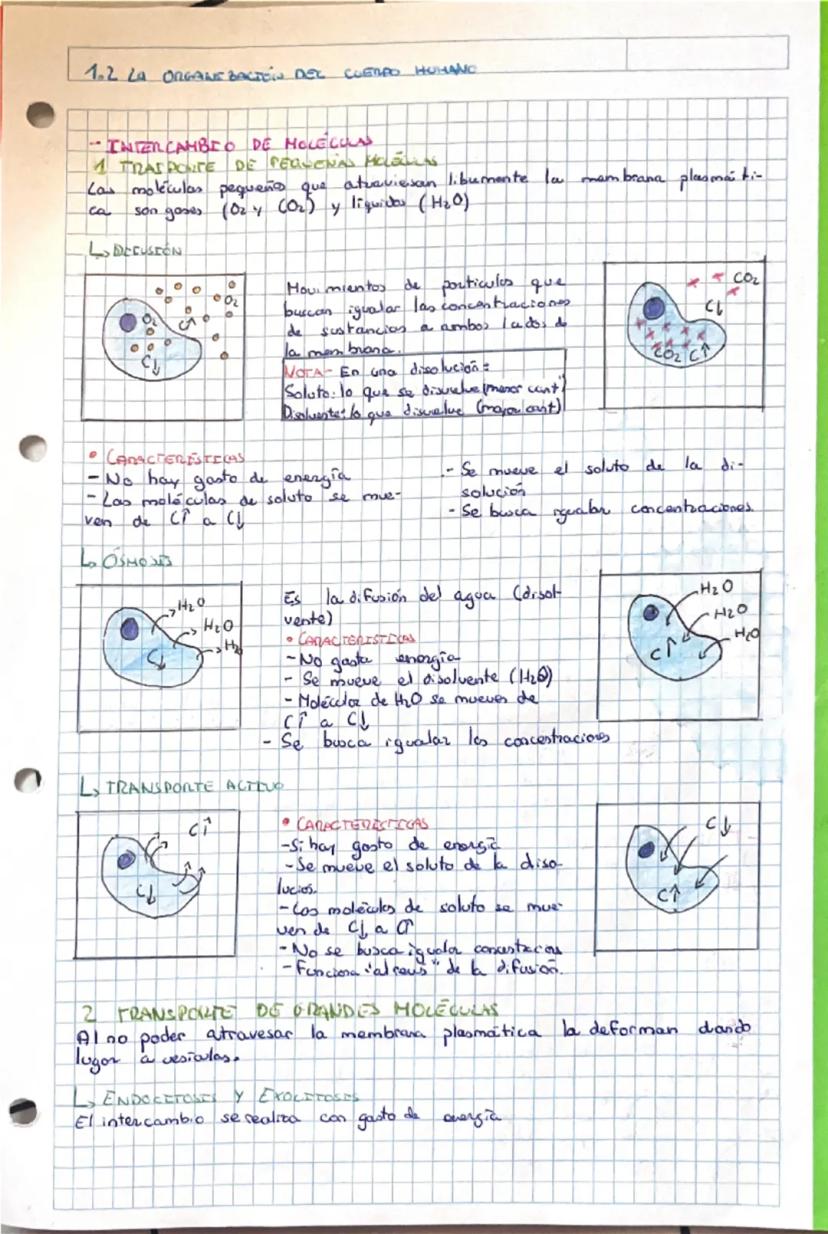 1.2 LA ORGANIZACIÓN DEL CUERPO HUMANO
- INTERCAMBIO DE MOLÉCULAS
1 TRASPORTE DE PEQUEÑAS MOLÉCULAS
Las moléculas pequeñas que atraviesan libremente la membrana plasmáti-
ca son gases (O2 y CO2) y líquidos (H2O)
↳ DIFUSIÓN
O2
O2
C↑
C↓
Movimientos de particulas que
buscan igualar las concentraciones
de sustancias a ambos lados d
la membrana.
NOTA- En una disolución:
Soluto: lo que se disuelve (menor cant)
Disolvente: lo que disuelve (mayor cant)
CO2
C↓
CO2 C↑
• CARACTERÍSTICAS
- No hay gasto de energía
- Las moléculas de soluto se mue-
ven de C↑ a C↓
- Se mueve el soluto de la di-
solución
- Se busca igualar concentraciones.
↳ ÓSMOSIS
H2O
H2O
H2
C↓
Es la difusión del agua (disol-
vente)
• CARACTERISTICAS
- No gasta energía
- Se mueve el disolvente (H2O)
- Molécular de H2O se mueven de
C↑ a C↓
- Se busca igualar las concentraciones
H2O
H2O
H2O
C↑
↳ TRANSPORTE ACTIVO
C↑
C↓
• CARACTERÍSTICAS
- Si hay gasto de energía
- Se mueve el soluto de la diso-
lución.
- Las moléculas de soluto se mue-
ven de C↓ a C↑
- No se busca igualar
- Funciona "al revés" de la difusión.
C↓
C↑
2 TRANSPORTE DE GRANDES MOLÉCULAS
Al no poder atravesar la membrana plasmática la deforman dando
lugar a vesículas.
↳ ENDOCITOSIS Y EXOCITOSIS
El intercambio se realiza con gasto de energía